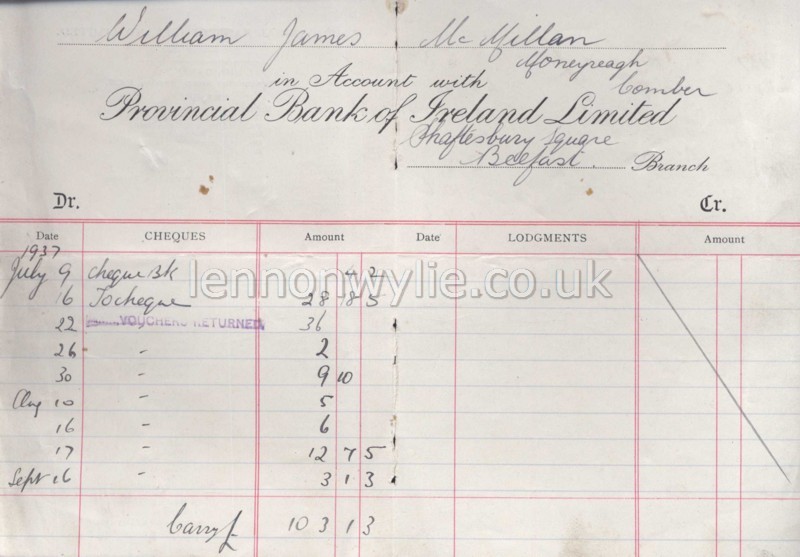 William James McMillan
Moneyreagh
in Account with Comber
Provincial Bank of Ireland Limited
Shaftesbury Square
Belfast. Branch
Dr. Cr.
Date CHEQUES Amount Date LODGMENTS Amount
1937
July 9 cheque Bk 4 2
lennonwylie.co.uk
16 To cheque 28 18 5
22 VOUCHERS RETURNED 36
26 " 2
30 " 9 10
Aug 10 " 5
16 " 6
17 " 12 7 5
Sept 16 " 3 1 3
Carry f 103 1 3